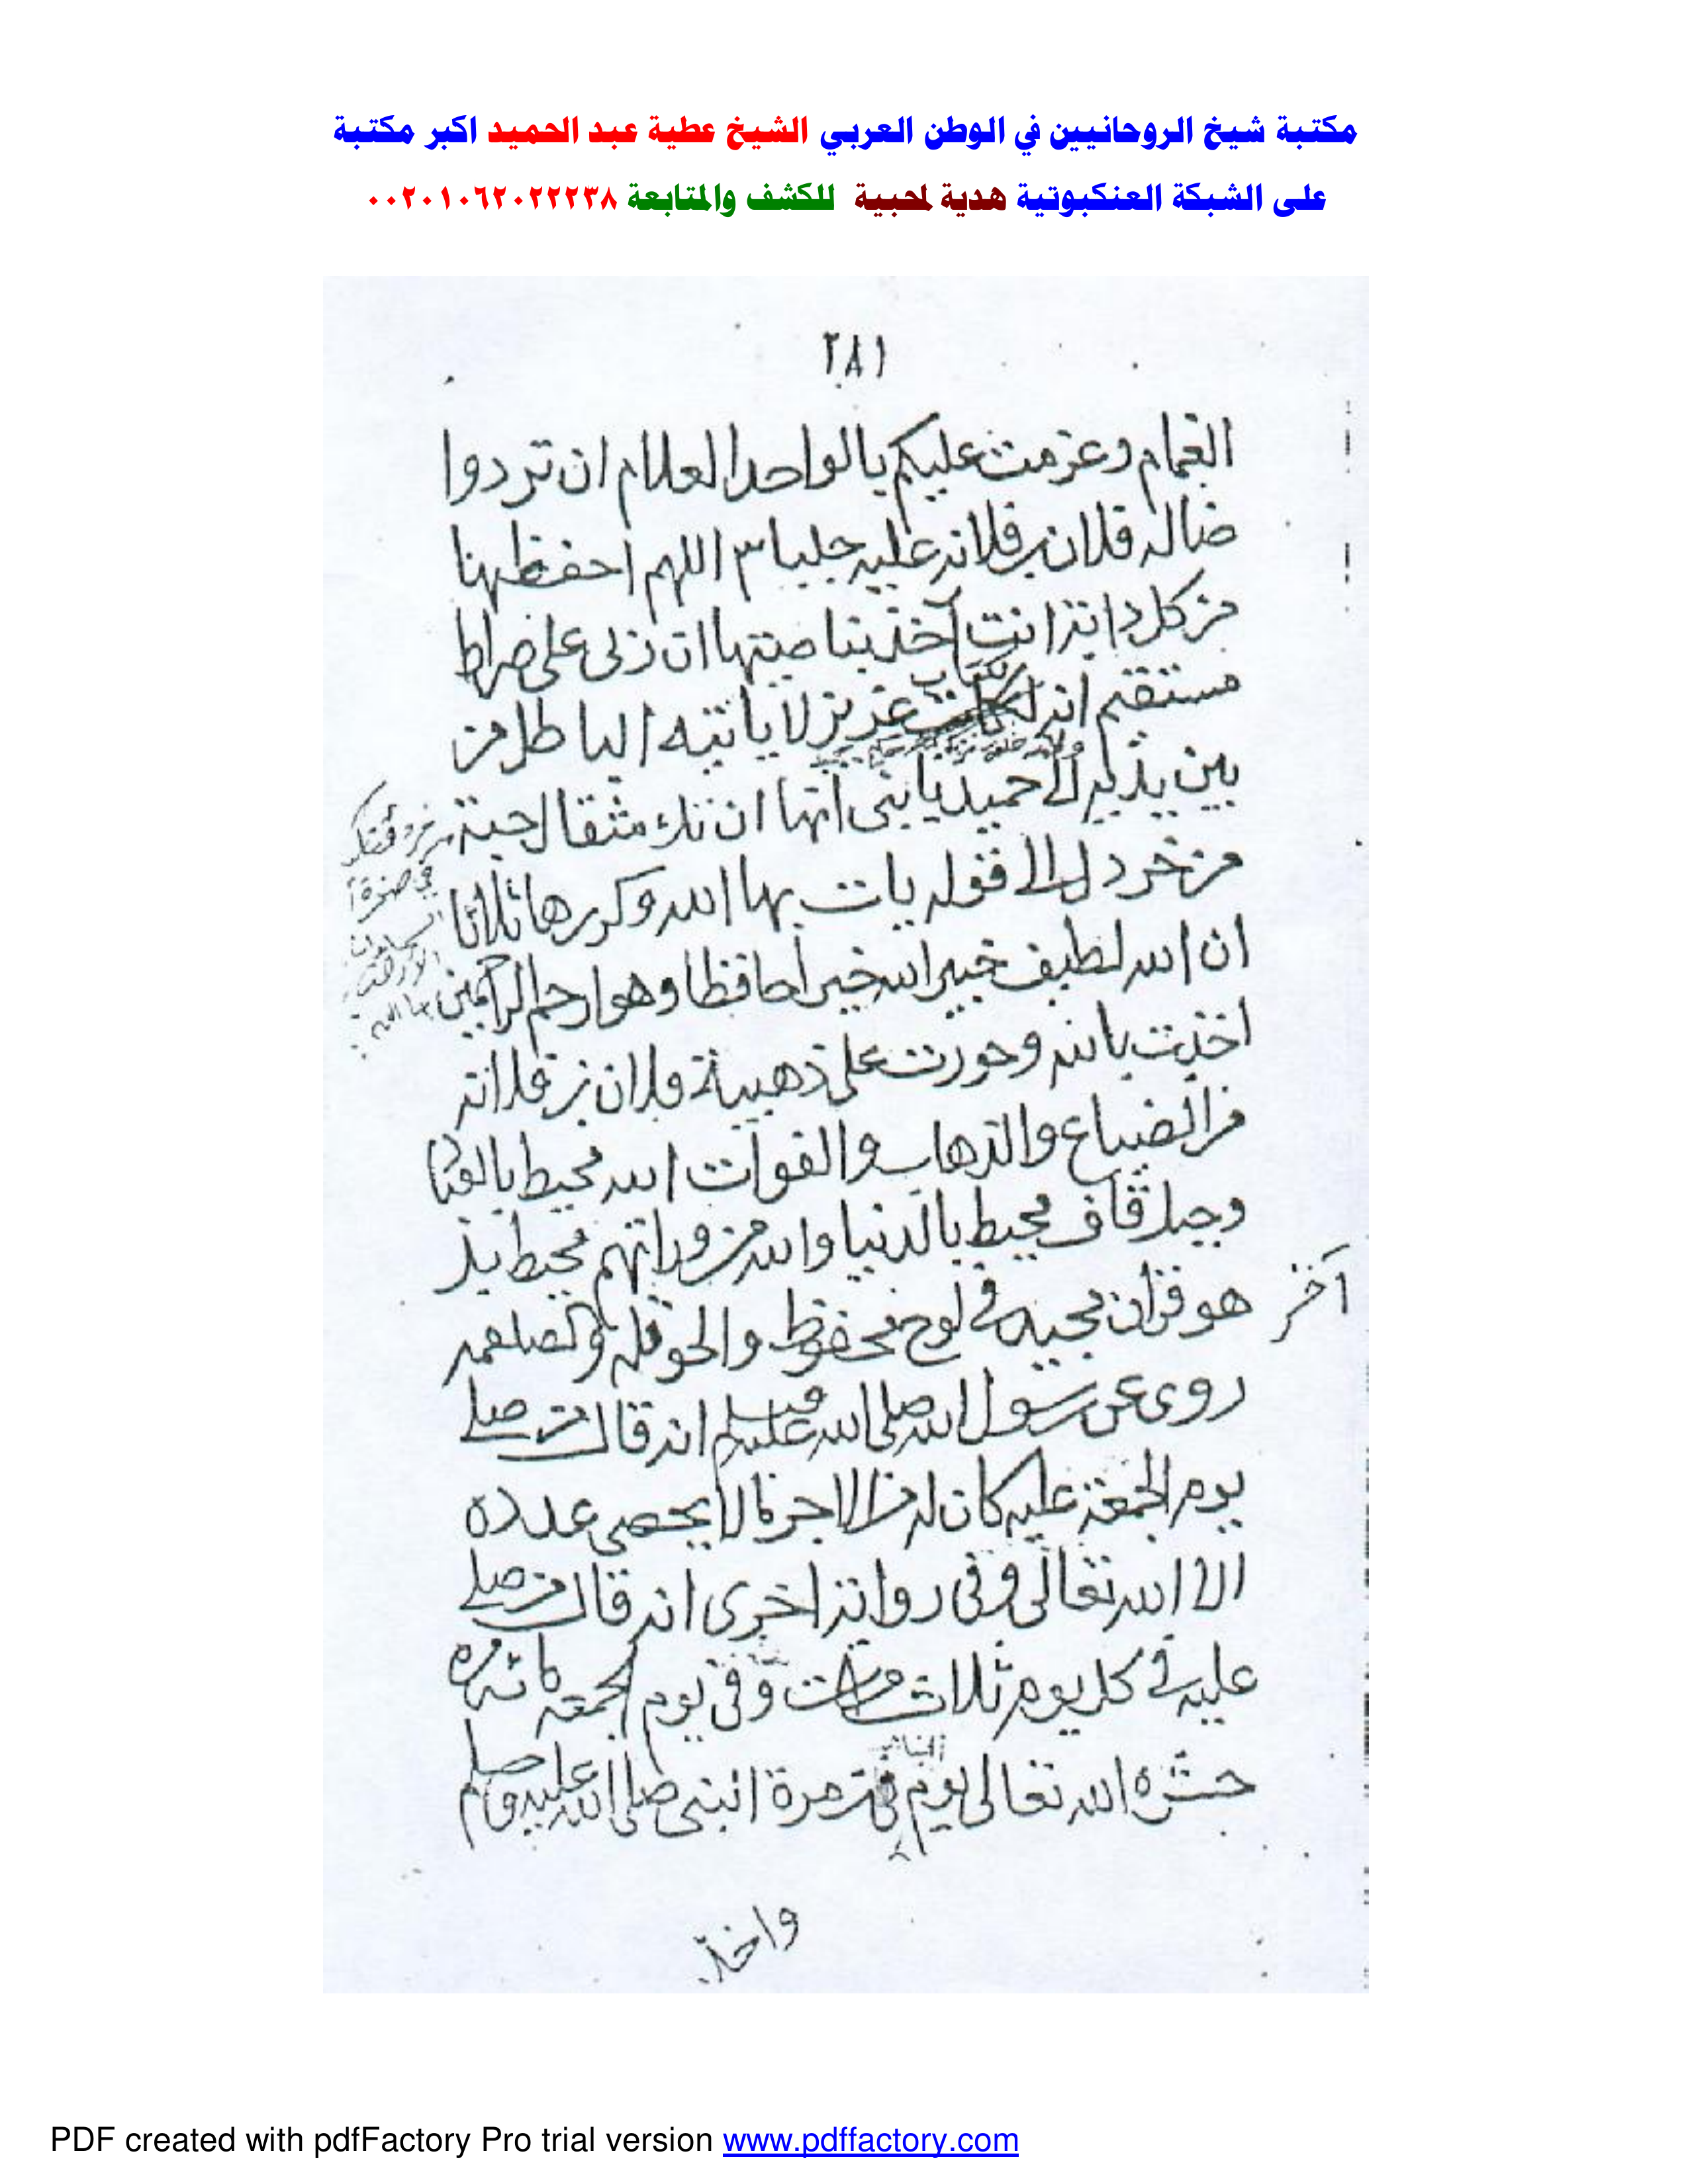 مكتبة شيخ الروحانيين في الوطن العربي الشيخ عطية عبد الحميد اكبر مكتبة
على الشبكة العنكبوتية هدية لمحبية للكشف والمتابعة ٠٠٢٠١٠٦٢٠٢٢٢٣٨
٢٨١
الغمام وعزمت عليكم بالواحد العلام ان تردوا
ضاله فلان بن فلانه عليه جلبا ٣ اللهم احفظها
من كل دابة انت آخذ بناصيتها ان ربى على صراط
مستقيم انه لكتاب عزيز لا ياتيه الباطل من
بين يديه الى حميد يا بنى انها ان تك مثقال حبة
من خردل الى قوله يات بها الله وكررها ثلاثا
ان الله لطيف خبير الله خير حافظا وهو ارحم الراحمين
بالله وحورت على ذهيبة فلان بن فلانه
من الضياع والذهاب والفوات الله محيط
وجبل قاف محيط بالدنيا والله من ورائهم محيط بل
هو قرآن مجيد فى لوح محفوظ والحوقله
آخر
روى عن رسول الله صلى الله عليه وسلم انه قال من صلى
يوم الجمعة عليه كان له من الاجر ما لا يحصى عدده
الا الله تعالى وفى رواية اخرى انه قال من صلى
عليه فى كل يوم ثلاث مرات وفى يوم الجمعة مائة مره
حشره الله تعالى يوم القيامة فى زمرة النبى صلى الله عليه وسلم
PDF created with pdfFactory Pro trial version www.pdffactory.com